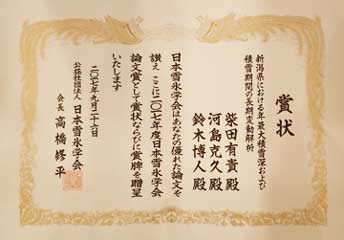 賞状
新潟県における年最大積雪深および
積雪期間の長期変動解析
柴田有貴殿
河島克久殿
鈴木博人殿
日本雪氷学会はあなたの優れた論文を
讃え ここに二〇一七年度日本雪氷学会
論文賞として賞状ならびに賞牌を贈呈
いたします
二〇一七年九月二十六日
公益社団法人 日本雪氷学会
会長 高橋修平